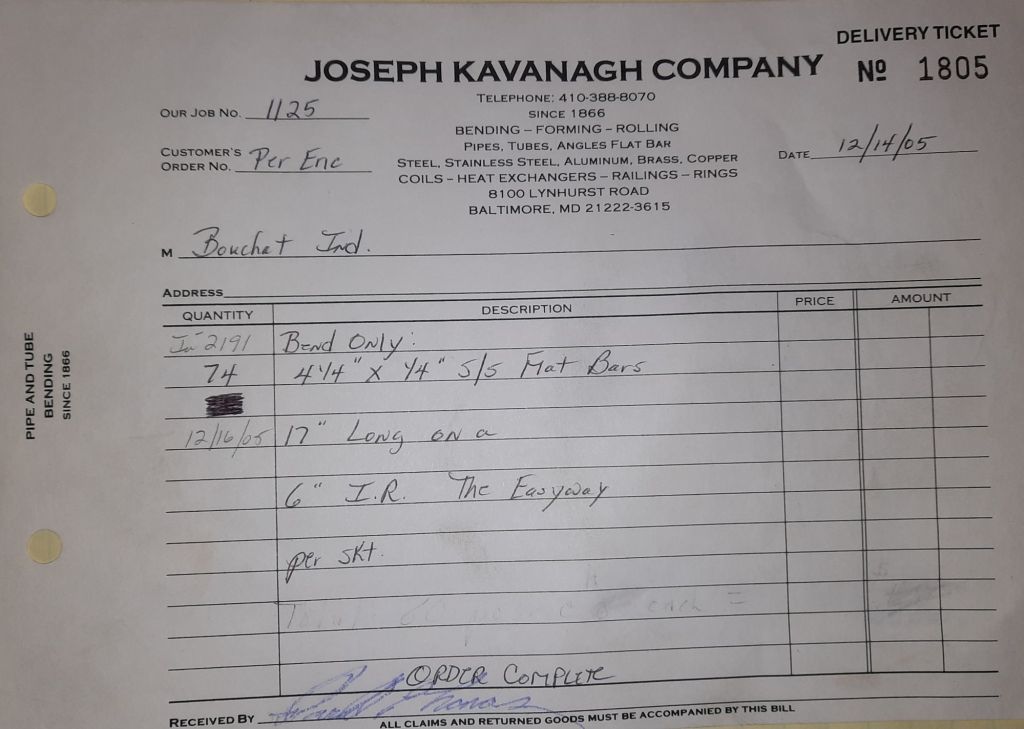 DELIVERY TICKET
JOSEPH KAVANAGH COMPANY
Nº 1805
TELEPHONE: 410-388-8070
SINCE 1866
BENDING – FORMING – ROLLING
PIPES, TUBES, ANGLES FLAT BAR
STEEL, STAINLESS STEEL, ALUMINUM, BRASS, COPPER
COILS – HEAT EXCHANGERS – RAILINGS – RINGS
8100 LYNHURST ROAD
BALTIMORE, MD 21222-3615
OUR JOB NO. 1125
CUSTOMER'S ORDER NO. Per Enc
DATE 12/14/05
M Bouchat Ind.
ADDRESS
QUANTITY DESCRIPTION PRICE AMOUNT
2191 Bend Only:
74 4 1/4" X 1/4" S/S Flat Bars
12/16/05 17" Long on a
6" I.R. The Easyway
per skt.
each =
ORDER COMPLETE
RECEIVED BY
ALL CLAIMS AND RETURNED GOODS MUST BE ACCOMPANIED BY THIS BILL
PIPE AND TUBE
BENDING
SINCE 1866